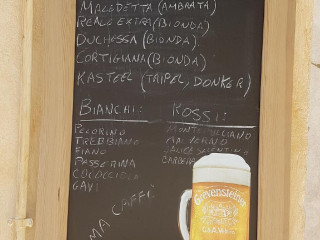 MALEDETTA (AMBRATA)
REALE EXTRA (BIONDA)
DUCHESSA (BIONDA)
CORTIGIANA (BIONDA)
KASTEEL (TRIPEL, DONKER)
BIANCHI:
PECORINO
TREBBIANO
FIANO
PASSERINA
COCOCCIOLA
GAVI
ROSSI:
MONTEPULCIANO
SALENTINO
BARBERA
Grevensteiner
MA CAFFÈ